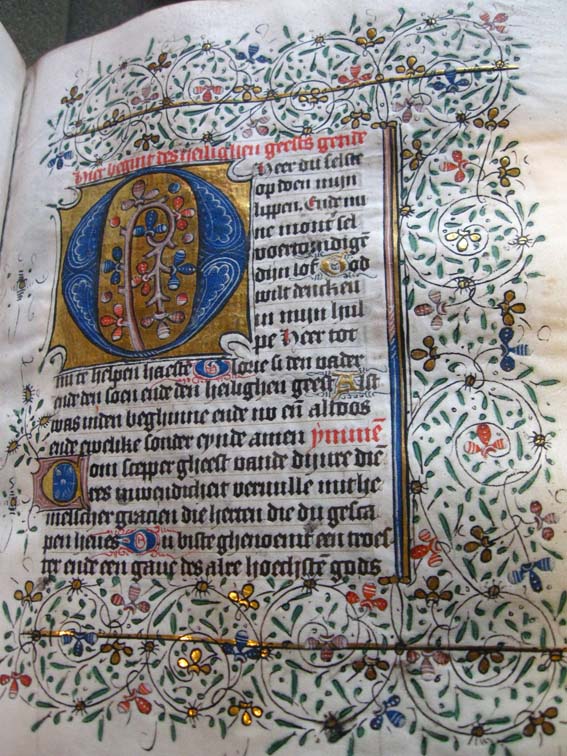 Hier begint des heilighen geests getide
O Heer du selste
op doen mijn
lippen. Ende mi
ne mont sel
voertcondigē
dijn lof God
wilt dencken
in mijn hul
pe Heer tot
mi te helpen haeste Glorie si den vader
ende den soen ende den heilighen geest Alst
was inden beghinne ende nv eñ altoos
ende ewelike sonder eynde amen ymmē
Com scepper gheest vande dijnre die
res inwendicheit vervulle mit he
melscher gracien die herten die du gesca
pen heues Du biste ghenoemt een troes
ter ende een gaue des alre hoechstē gods